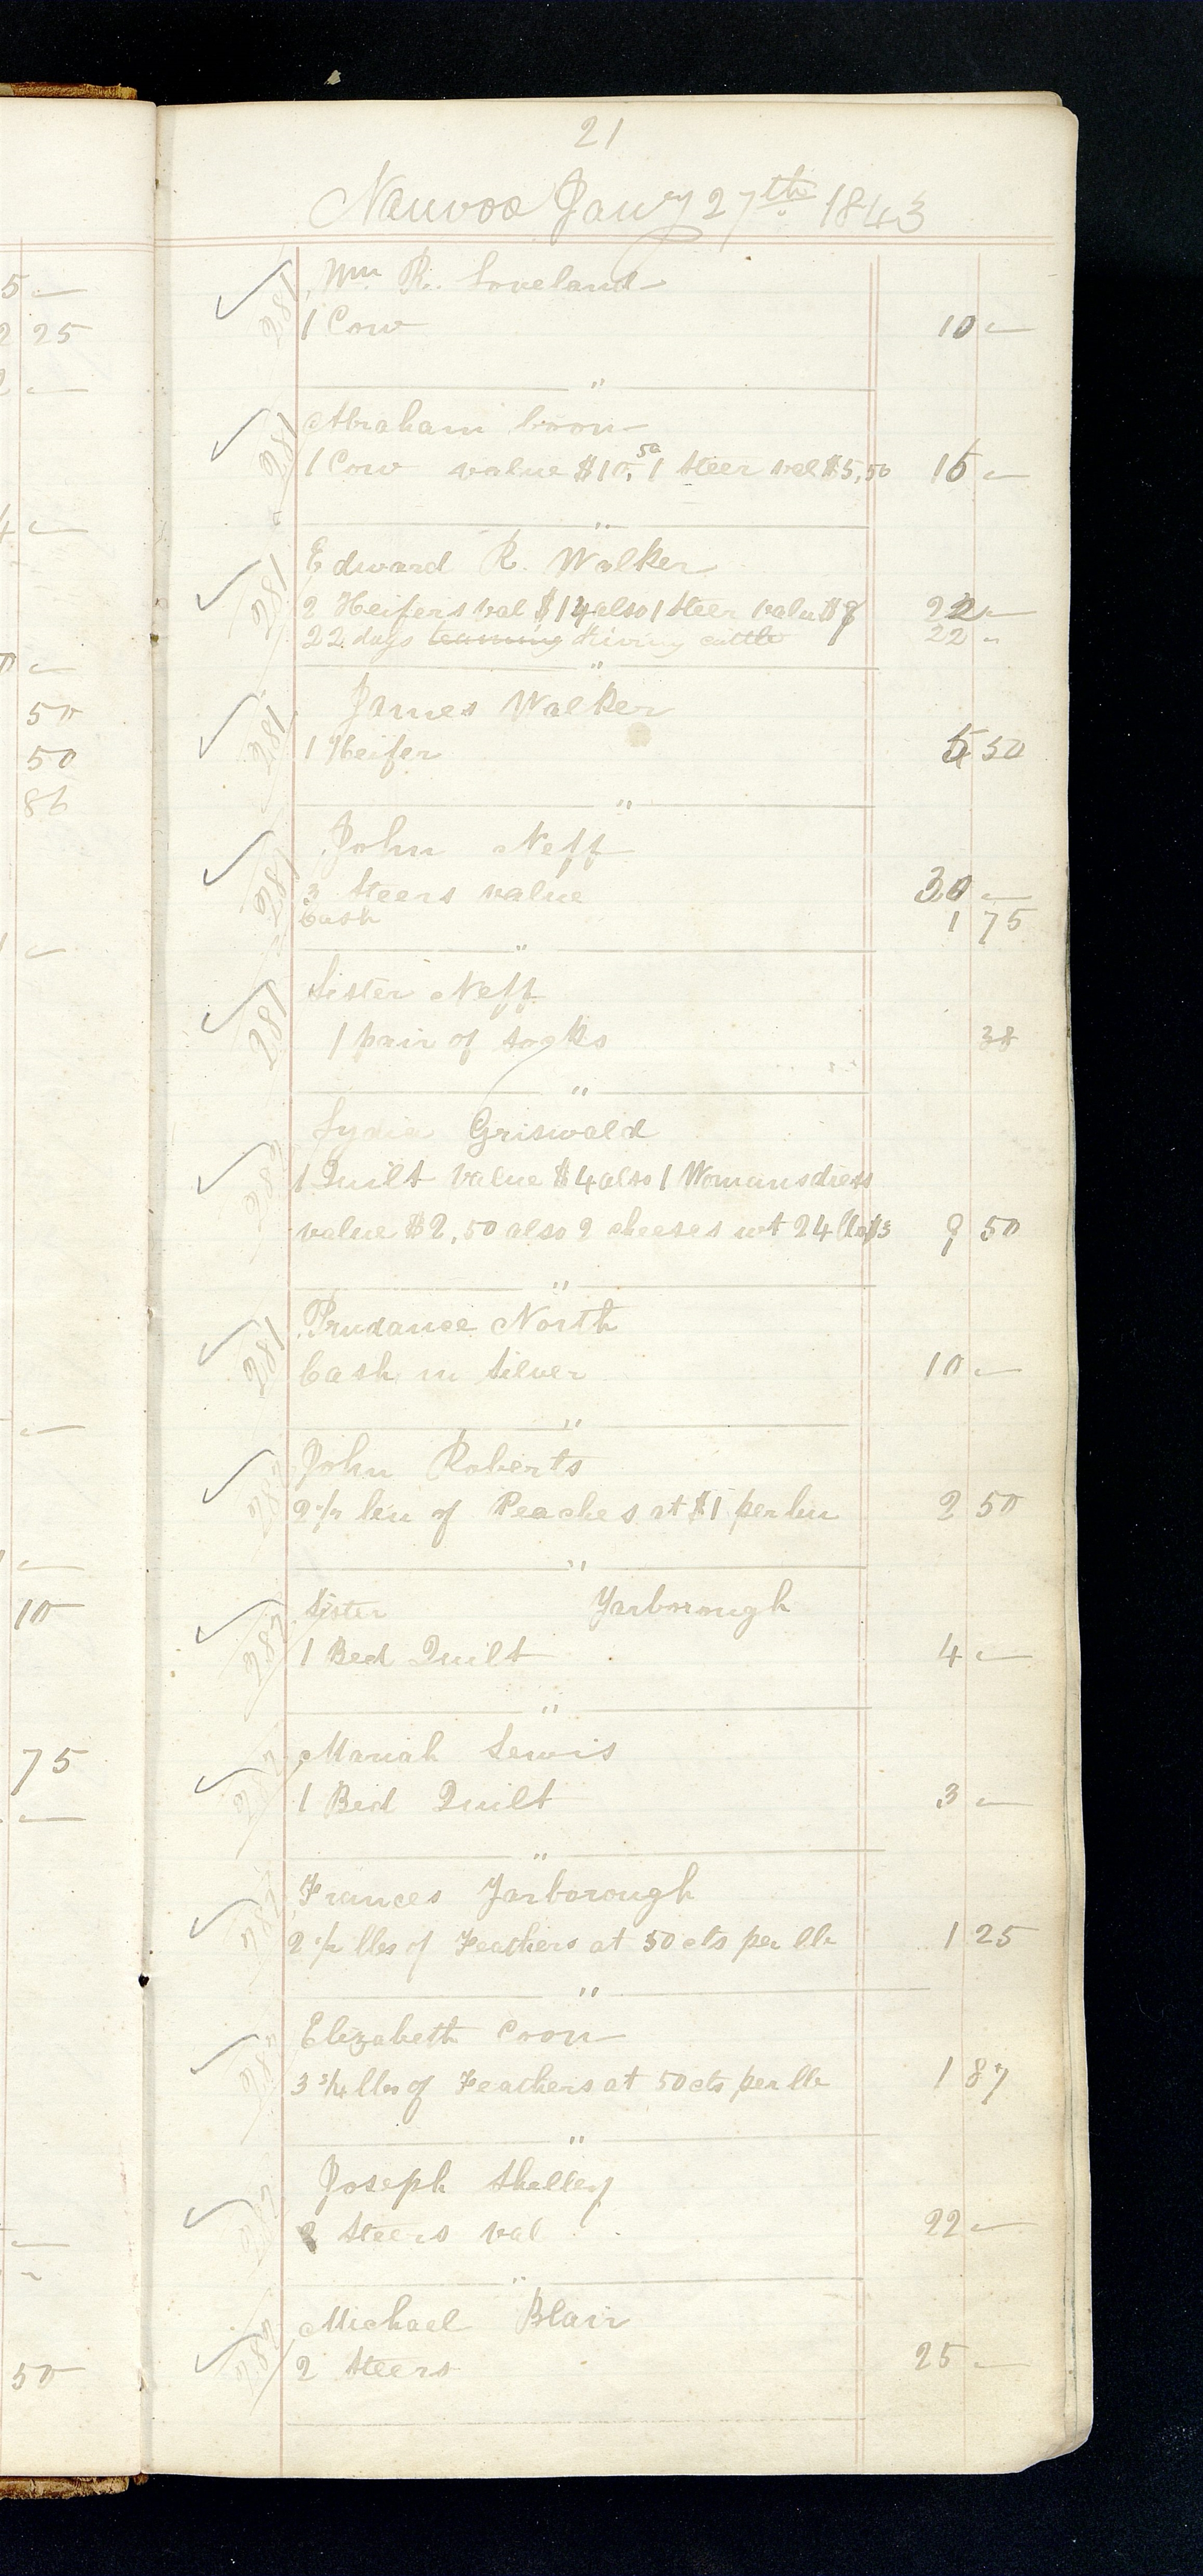 21
Nauvoo Jan'ry 27th 1843
5 —
2 25
—
4 —
—
50
50
86
—
—
—
10
75
—
—
50
Wm R. Loveland
182
1 Cow 10 —
"
Abraham Coon
182
1 Cow value $10,50 1 Steer val $5,50 16 —
"
Edward R. Walker
182
2 Heifers val $14 also 1 Steer valu $8 22 —
22 days teaming driving cattle 22 "
"
James Walker
182
1 Heifer 5 50
"
John Neff
182
3 Steers value 30 —
Cash 1 75
"
Sister Neff
182
1 pair of socks 38
"
Lydia Griswald
1 Quilt value $4 also 1 Womans dress
value $2,50 also 2 cheeses wt 24 lbs $3 9 50
"
Prudance North
182
Cash in Silver 10 —
"
John Roberts
2 1/2 bu of Peaches at $1 per bu 2 50
"
Sister Yarborough
1 Bed Quilt 4 —
"
Mariah Lewis
1 Bed Quilt 3 —
"
Frances Yarborough
2 1/2 lbs of Feathers at 50 cts per lb 1 25
"
Elizabeth Coon
3 3/4 lbs of Feathers at 50 cts per lb 1 87
"
Joseph Shelley
2 Steers val 22 —
"
Michael Blair
2 Steers 25 —